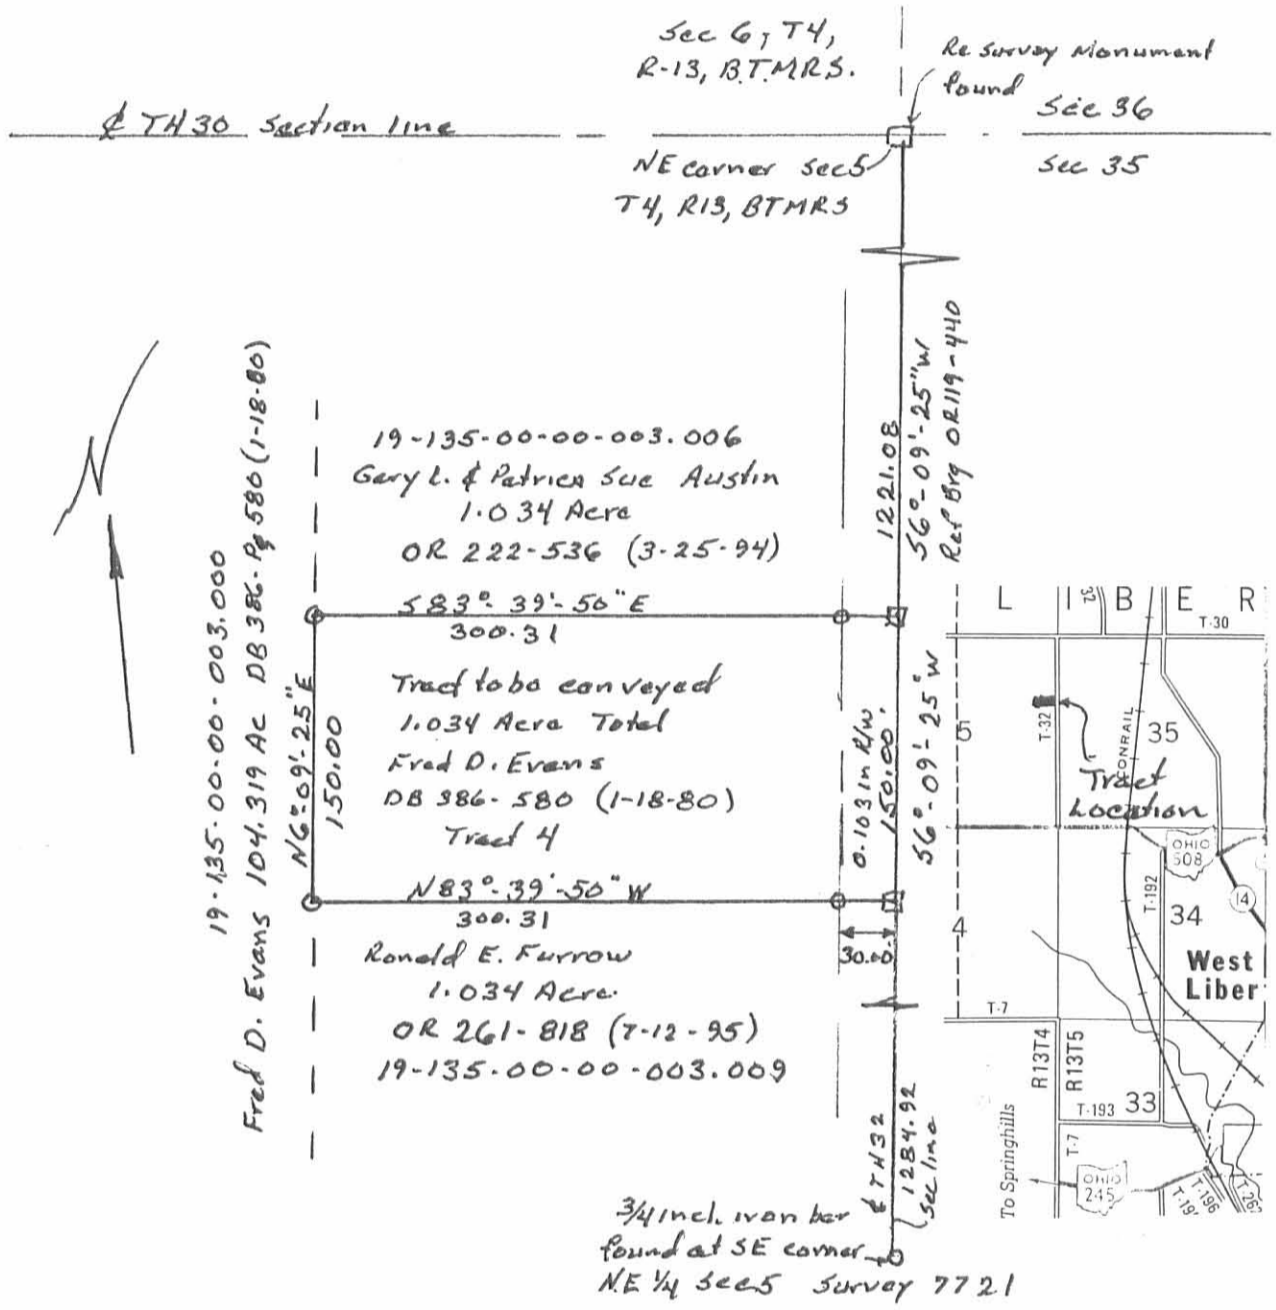 Sec 6, T4,
R-13, B.T.M.R.S.
Re survey Monument
found
Sec 36
℄ TH 30 Section line
NE corner Sec 5
T4, R13, BTMRS
Sec 35
S6°-09'-25"W
Ref Brg OR119-440
1221.08
N
19-135-00-00-003.000
Fred D. Evans 104.319 Ac DB 386-Pg 580 (1-18-80)
19-135-00-00-003.006
Gary L. & Patricia Sue Austin
1.034 Acre
OR 222-536 (3-25-94)
S83°-39'-50"E
300.31
N6°-09'-25"E
150.00
Tract to be conveyed
1.034 Acre Total
Fred D. Evans
DB 386-580 (1-18-80)
Tract 4
0.103 in R/W
150.00'
S6°-09'-25"W
N83°-39'-50"W
300.31
30.00
Ronald E. Furrow
1.034 Acre
OR 261-818 (7-12-95)
19-135-00-00-003.009
℄ TH32
1284.92
Sec line
3/4 inch iron bar
found at SE corner
N.E 1/4 Sec 5 Survey 7721
L I B E R
32
T-30
5
T-32
CONRAIL
35
Tract
Location
OHIO
508
T-192
14
4
34
West
Liber
T-7
R13T4
R13T5
T-193
33
To Springhills
T-7
OHIO
245
T-196
T-19
T-26